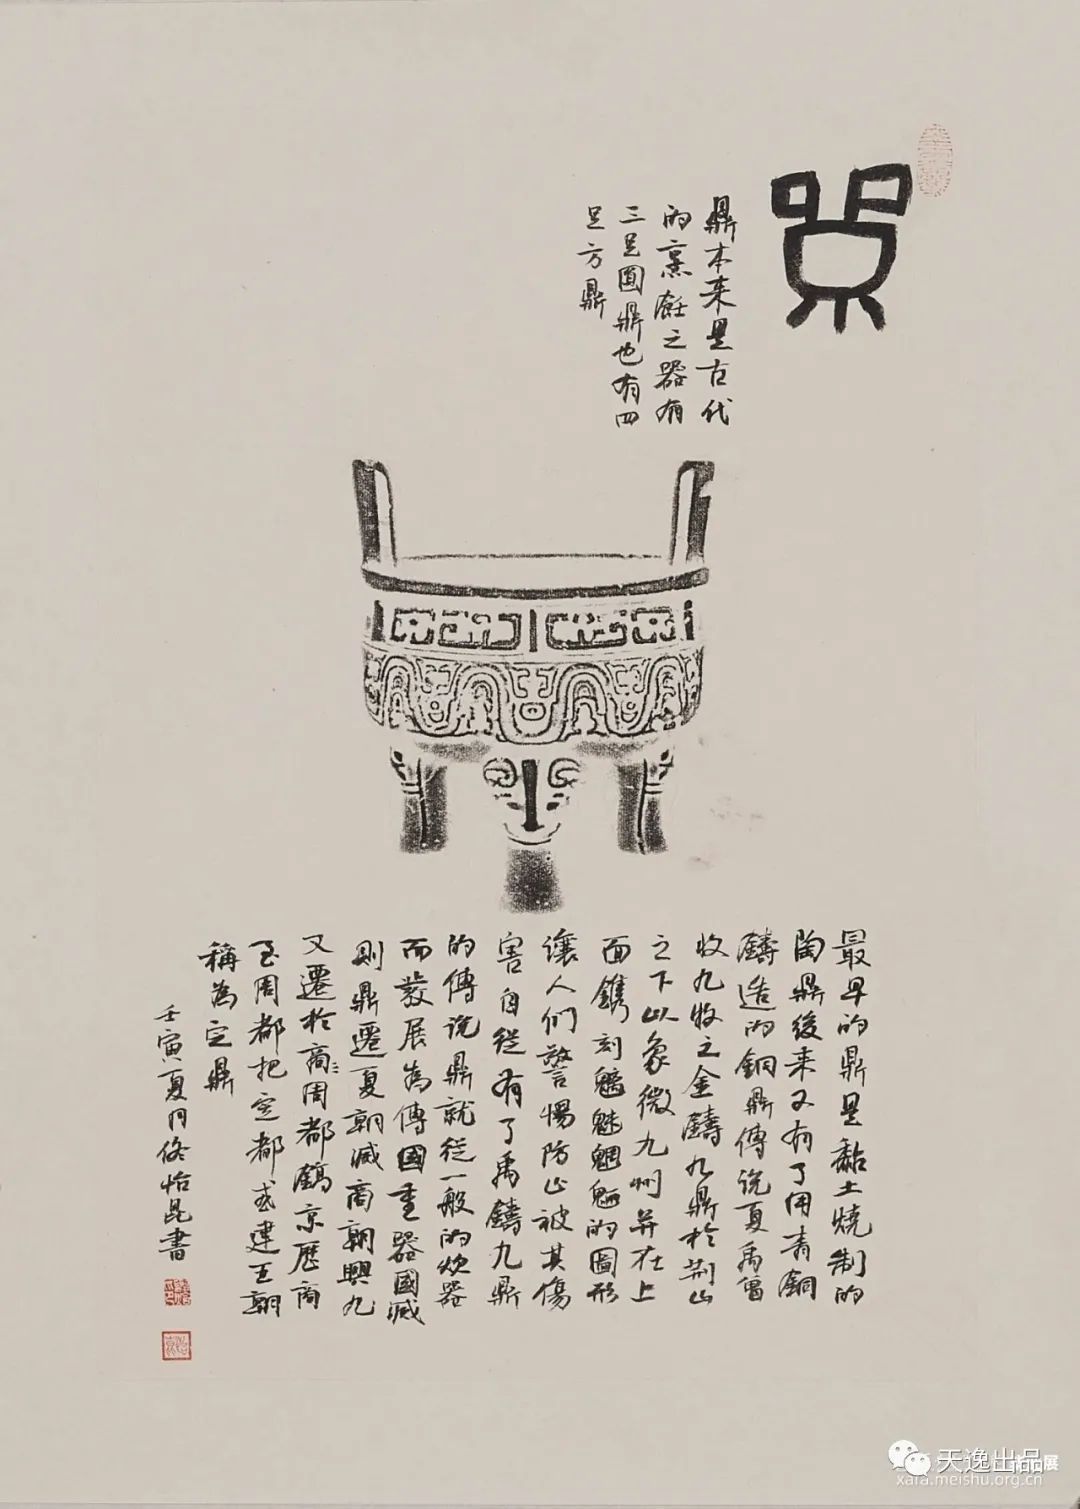 鼎
鼎本来是古代
的烹飪之器有
三足圆鼎也有四
足方鼎
最早的鼎是黏土燒制的
陶鼎後来又有了用青銅
鑄造的銅鼎傳说夏禹曾
收九牧之金鑄九鼎於荆山
之下以象徵九州并在上
面鐫刻魑魅魍魎的圖形
讓人们警惕防止被其傷
害自從有了禹鑄九鼎
的傳说鼎就從一般的炊器
而發展為傳國重器國滅
則鼎遷夏朝滅商朝興九
又遷於商周都鎬京歷商
至周都把定都或建王朝
稱為定鼎
壬寅夏月佟怡昆書
天逸出品
展
xara.meishu.org.cn